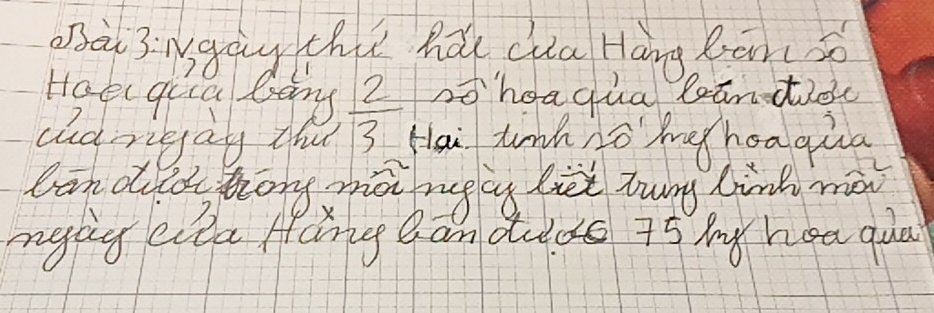 Bài 3: Ngày thứ hai cửa Hàng bán số
Hoa quả bằng 2/3 số hoa quả bán được
của ngày thứ Hai. tính số kg hoa quả
bán được trong mỗi ngày biết trung bình mỗi
ngày cửa Hàng bán được 75 kg hoa quả